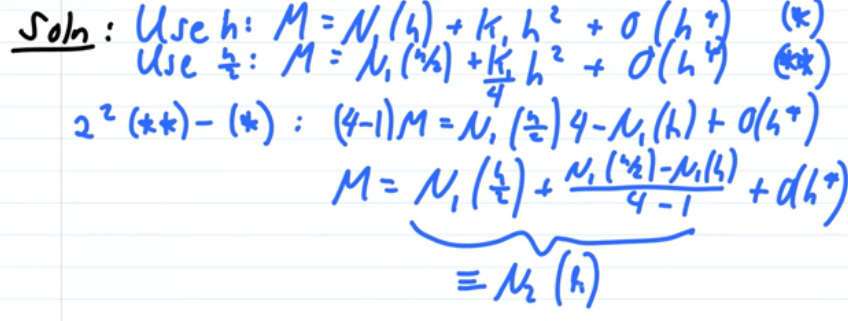 Soln: Use h: M = N₁(h) + K₁h² + O(h⁴) (*)
Use h/2: M = N₁(h/2) + K₁/4 h² + O(h⁴) (**)
2²(**) - (*) : (4-1)M = N₁(h/2)4 - N₁(h) + O(h⁴)
M = N₁(h/2) + (N₁(h/2) - N₁(h))/(4-1) + O(h⁴)
≡ N₂(h)